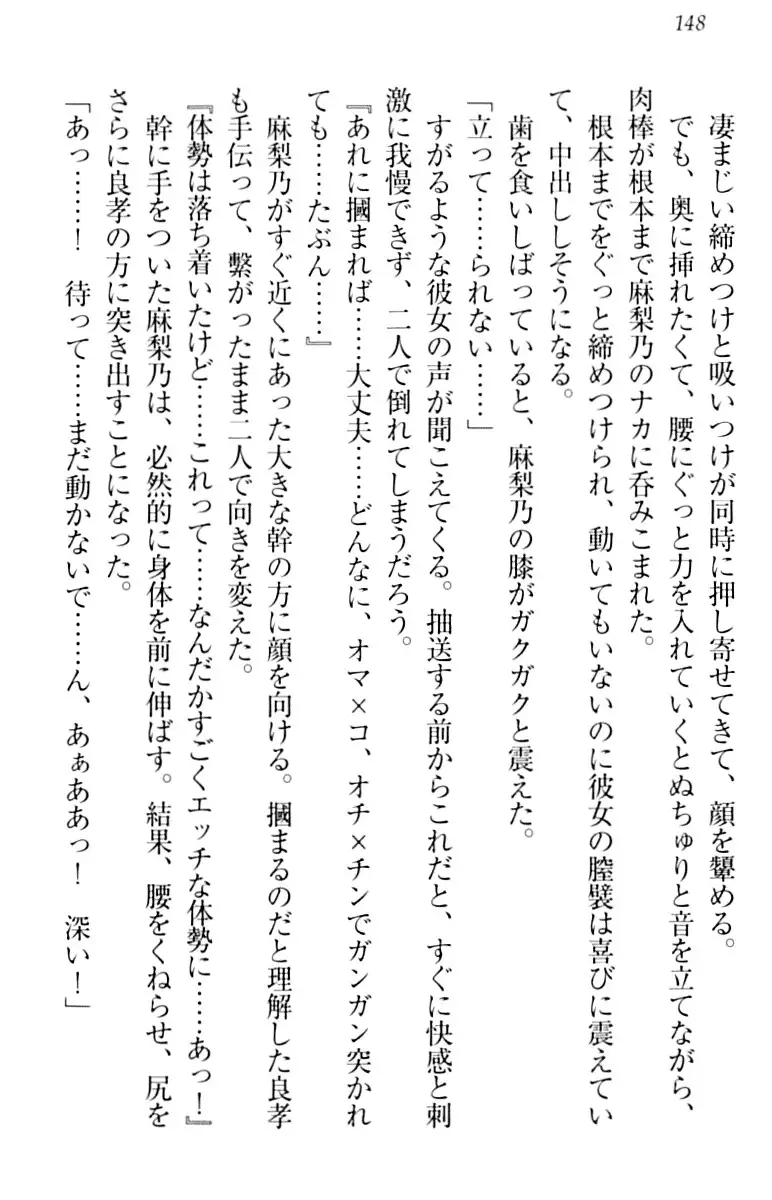 148
凄まじい締めつけと吸いつけが同時に押し寄せてきて、顔を顰める。
でも、奥に挿れたくて、腰にぐっと力を入れていくとぬちゅりと音を立てながら、
肉棒が根本まで麻梨乃のナカに呑みこまれた。
根本までをぐっと締めつけられ、動いてもいないのに彼女の膣襞は喜びに震えてい
て、中出ししそうになる。
歯を食いしばっていると、麻梨乃の膝がガクガクと震えた。
「立って……られない……」
すがるような彼女の声が聞こえてくる。抽送する前からこれだと、すぐに快感と刺
激に我慢できず、二人で倒れてしまうだろう。
『あれに摑まれば……大丈夫……どんなに、オマ×コ、オチ×チンでガンガン突かれ
ても……たぶん……』
麻梨乃がすぐ近くにあった大きな幹の方に顔を向ける。摑まるのだと理解した良孝
も手伝って、繋がったまま二人で向きを変えた。
『体勢は落ち着いたけど……これって……なんだかすごくエッチな体勢に……あっ！』
幹に手をついた麻梨乃は、必然的に身体を前に伸ばす。結果、腰をくねらせ、尻を
さらに良孝の方に突き出すことになった。
「あっ……！　待って……まだ動かないで……ん、あぁああっ！　深い！」